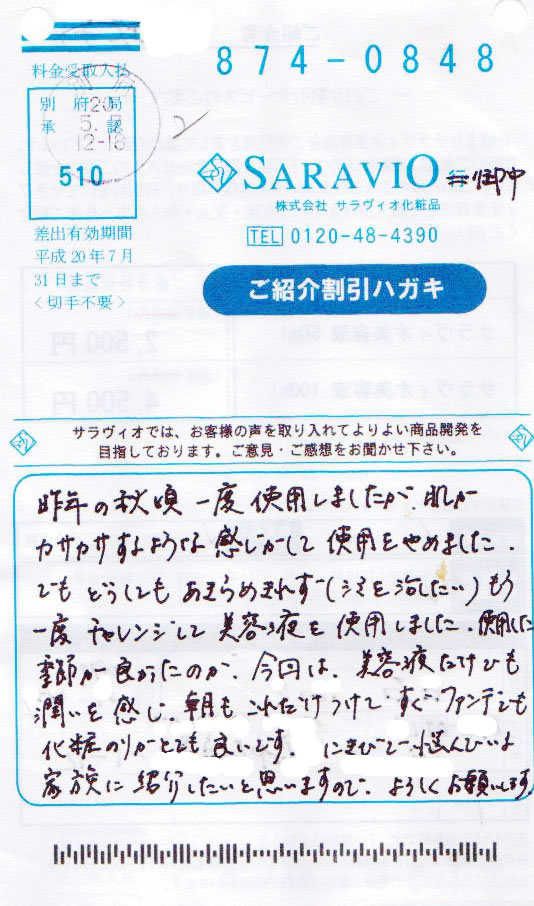 874-0848
料金受取人払
別府局
承認
510
20
5.
12-18
SARAVIO 行 御中
株式会社 サラヴィオ化粧品
TEL 0120-48-4390
差出有効期間
平成20年7月
31日まで
<切手不要>
ご紹介割引ハガキ
サラヴィオでは、お客様の声を取り入れてよりよい商品開発を
目指しております。ご意見・ご感想をお聞かせ下さい。
昨年の秋頃 一度使用しましたが 肌が
カサカサするような感じがして使用をやめました.
でも どうしても あきらめきれず(シミを治したい)もう
一度チャレンジして 美容液を使用しました. 使用した
季節が良かったのか. 今回は. 美容液だけでも
潤いを感じ 朝も これだけつけて すぐファンデでも
化粧のりがとても良いです. にきびで悩んでいる
家族に紹介したいと思いますので. よろしくお願いします